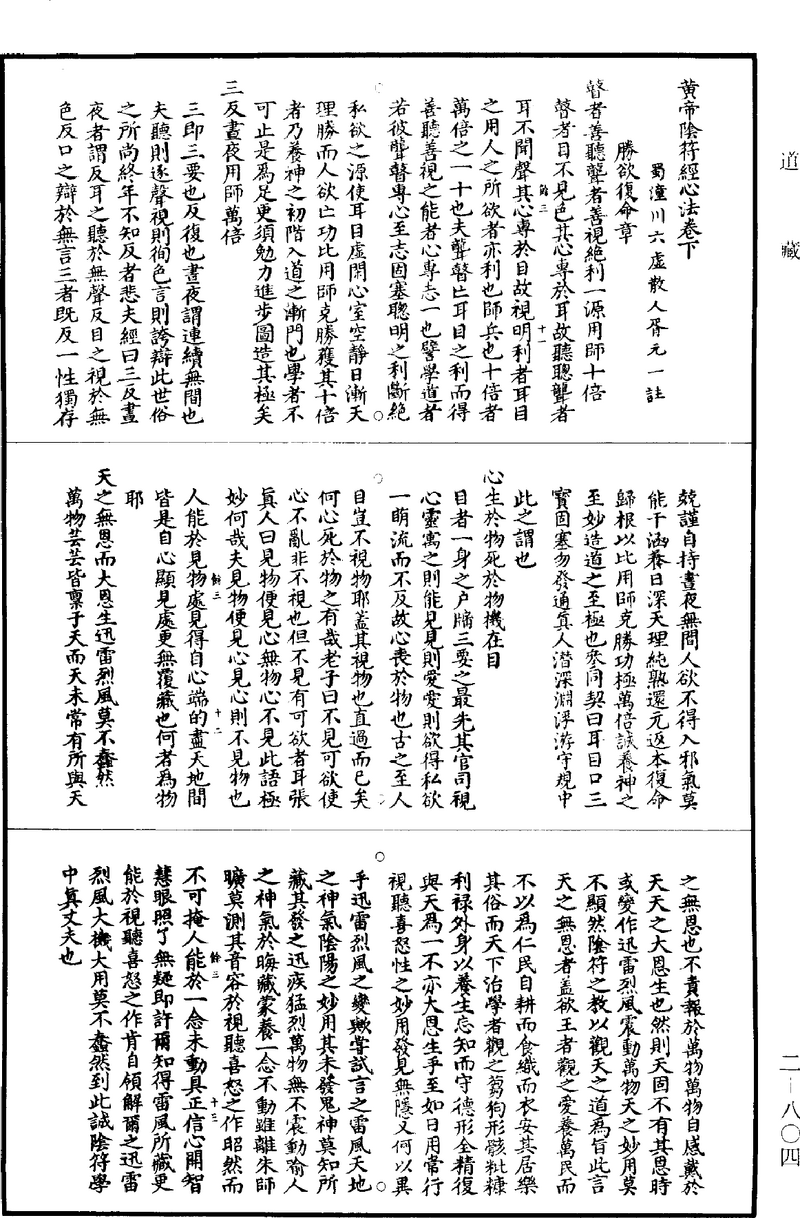 道藏
黄帝陰符經心法卷下
蜀潼川六虛散人胥元一註
勝欲復命章
瞽者善聽聾者善視絶利一源用師十倍
瞽者目不見色其心專於耳故聽聰聾者
耳不聞聲其心專於目故視明利者耳目
之用人之所欲者亦利也師兵也十倍者
萬倍之一十也夫聾瞽亡耳目之利而得
善聽善視之能者心專志一也譬學道者
若彼聾瞽專心至志固塞聰明之利斷絶
私欲之源使耳目虛閑心室空靜日漸天
理勝而人欲亡功比用師克勝獲其十倍
者乃養神之初階入道之漸門也學者不
可止是為足更須勉力進步圖造其極矣
三反晝夜用師萬倍
三即三要也反復也晝夜謂連續無間也
夫聽則逐聲視則徇色言則誇辯此世俗
之所尚終年不知反者悲夫經曰三反晝
夜者謂反耳之聽於無聲反目之視於無
色反口之辯於無言三者既反一性獨存
兢謹自持晝夜無間人欲不得入邪氣莫
能干涵養日深天理純熟還元返本復命
歸根以比用師克勝功極萬倍誠養神之
至妙造道之至極也參同契曰耳目口三
寶固塞勿發通真人潛深淵浮游守規中
此之謂也
心生於物死於物機在目
目者一身之户牖三要之最先其官司視
心靈寓之則能見見則愛愛則欲得私欲
一萌流而不反故心喪於物也古之至人
目豈不視物耶蓋其視物也直過而已矣
何心死於物之有哉老子曰不見可欲使
心不亂非不視也但不見有可欲者耳張
真人曰見物便見心無物心不見此語極
妙何哉夫見物便見心見心則不見物也
人能於見物處見得自心端的盡天地間
皆是自心顯見處更無覆藏也何者為物
耶
天之無恩而大恩生迅雷烈風莫不蠢然
萬物芸芸皆稟于天而天未常有所與天
之無恩也不責報於萬物萬物自感戴於
天天之大恩生也然則天固不有其恩時
或變作迅雷烈風震動萬物天之妙用莫
不顯然陰符之教以觀天之道為旨此言
天之無恩者蓋欲王者觀之愛養萬民而
不以為仁民自耕而食織而衣安其居樂
其俗而天下治學者觀之芻狗形骸粃糠
利禄外身以養生忘知而守德形全精復
與天為一不亦大恩生乎至如日用常行
視聽喜怒性之妙用發見無隱又何以異
乎迅雷烈風之變歟嘗試言之雷風天地
之神氣陰陽之妙用其未發鬼神莫知所
藏其發之迅疾猛烈萬物無不震動喻人
之神氣於晦藏蒙養一念不動雖離朱師
曠莫測其音容於視聽喜怒之作昭然而
不可掩人能於一念未動具正信心開智
慧眼照了無疑即許爾知得雷風所藏更
能於視聽喜怒之作肯自領解爾之迅雷
烈風大機大用莫不蠢然到此誠陰符學
中真丈夫也
餘三
十一
餘三
十二
餘三
十三
二—八〇四